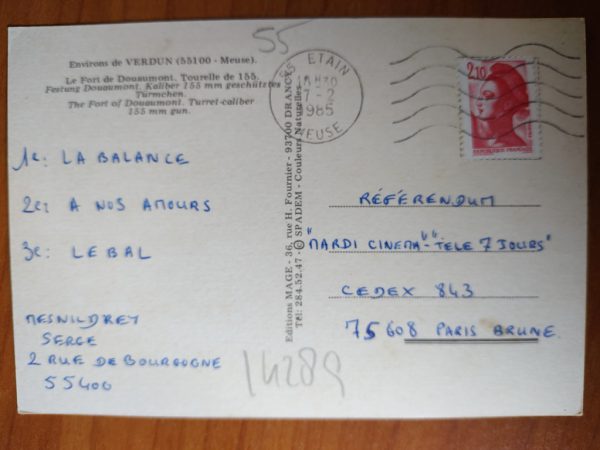 55
Environs de VERDUN (55100 - Meuse).
Le Fort de Douaumont. Tourelle de 155.
Festung Douaumont. Kaliber 155 mm geschütztes
Türmchen.
The Fort of Douaumont. Turret-caliber
155 mm gun.
1e: LA BALANCE
2e: A NOS AMOURS
3e: LE BAL
MESNILDREY
SERGE
2 RUE DE BOURGOGNE
55400
14289
Editions MAGE - 36, rue H. Fournier - 93700 DRANCY
Tél: 284.52.47 - © SPADEM - Couleurs Naturelles
55 ETAIN
7-2
1985
MEUSE
2,10
REPUBLIQUE FRANÇAISE
RÉFÉRENDUM
"MARDI CINEMA"-"TELE 7 JOURS"
CEDEX 843
75608 PARIS BRUNE